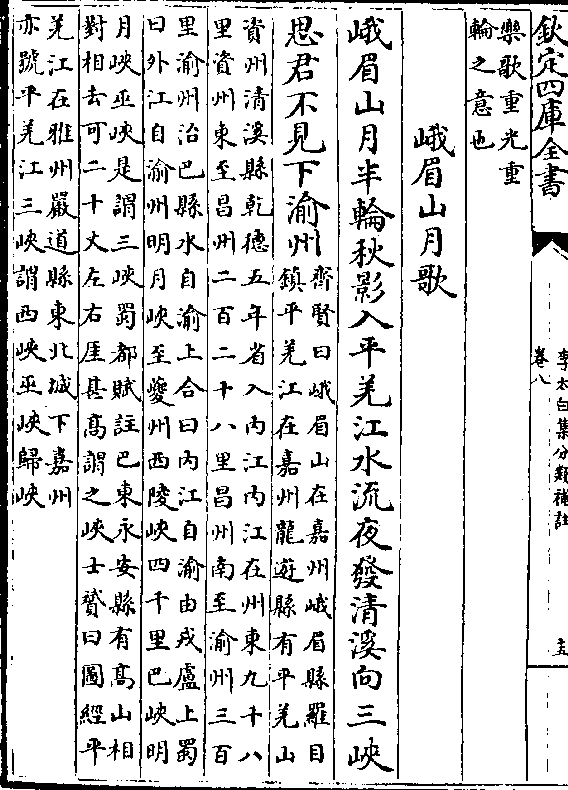 欽定四庫全書
李太白集分類補註
卷八
五
樂歌重光重
輪之意也
峨眉山月歌
峨眉山月半輪秋影入平羌江水流夜發清溪向三峽
思君不見下渝州
齊賢曰峨眉山在嘉州峨眉縣羅目
鎮平羌江在嘉州龍遊縣有平羌山
資州清溪縣乾德五年省入内江内江在州東九十八
里資州東至昌州二百二十八里昌州南至渝州三百
里渝州治巴縣水自渝上合曰内江自渝由戎盧上蜀
曰外江自渝州明月峽至夔州西陵峽四千里巴峽明
月峽巫峽是謂三峽蜀都賦註巴東永安縣有髙山相
對相去可二十丈左右厓甚髙謂之峽士贇曰圖經平
羌江在雅州嚴道縣東北城下嘉州
亦號平羌江三峽謂西峽巫峽歸峽